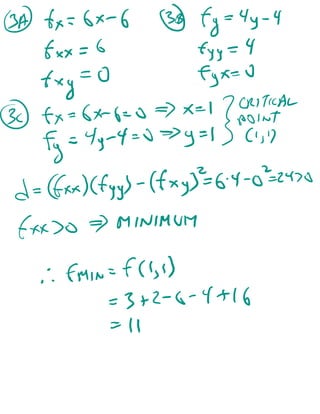 3A fx = 6x-6 3B fy = 4y-4
fxx = 6 fyy = 4
fxy = 0 fyx = 0
3C fx = 6x-6=0 ⇒ x=1 } CRITICAL POINT (1,1)
fy = 4y-4=0 ⇒ y=1
d = (fxx)(fyy) - (fxy)² = 6·4-0² = 24>0
fxx>0 ⇒ MINIMUM
∴ fMIN = f(1,1)
= 3+2-6-4+16
= 11